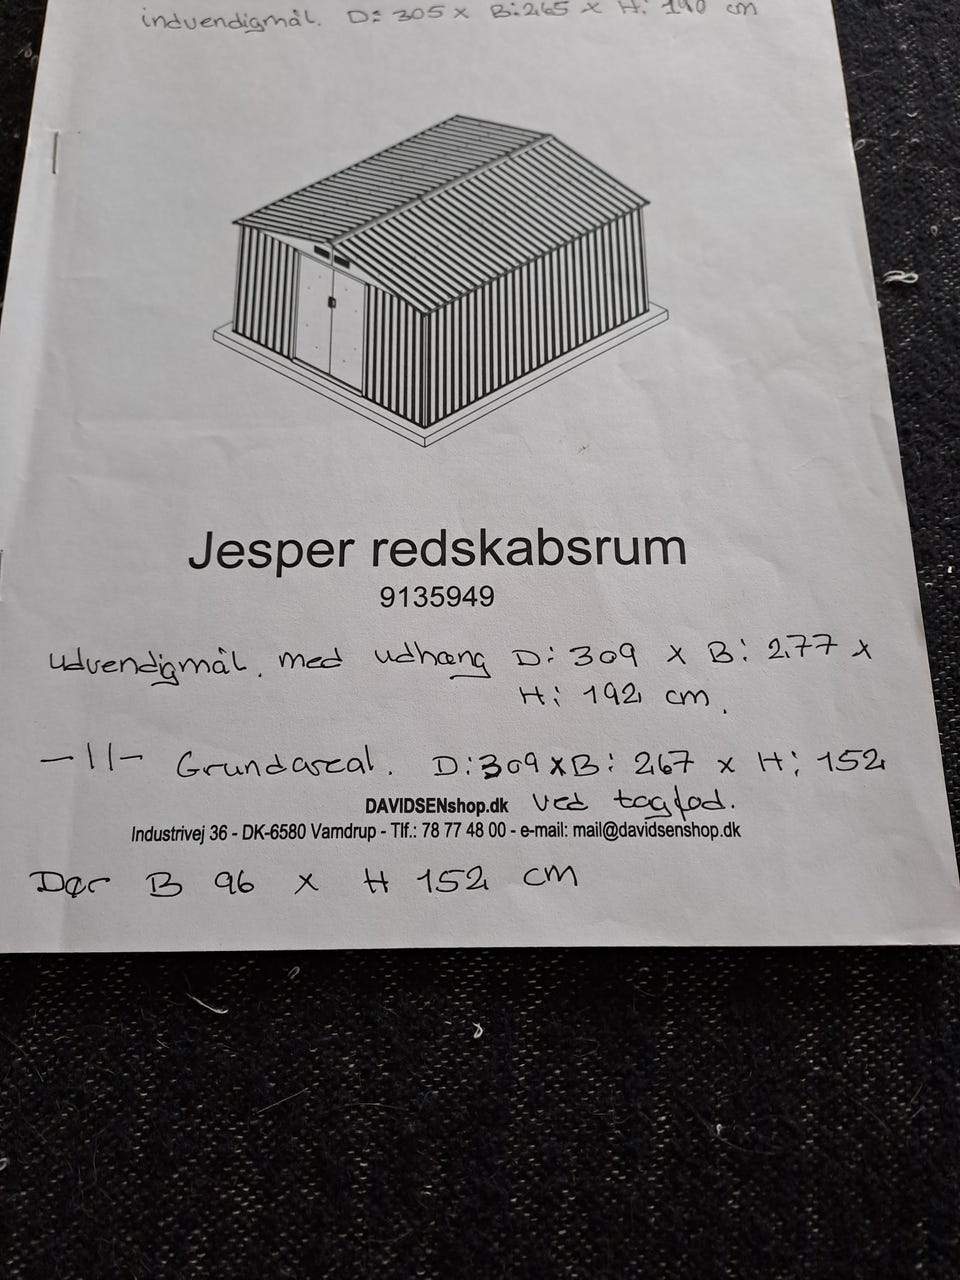 indvendigmål. D: 305 x B: 265 x H: 190 cm
Jesper redskabsrum
9135949
udvendigmål. med udhæng D: 309 x B: 277 x
H: 192 cm.
-11- Grundareal. D: 309 x B: 267 x H: 152
DAVIDSENshop.dk ved tagfod.
Industrivej 36 - DK-6580 Vamdrup - Tlf.: 78 77 48 00 - e-mail: mail@davidsenshop.dk
Dør B 96 x H 152 cm